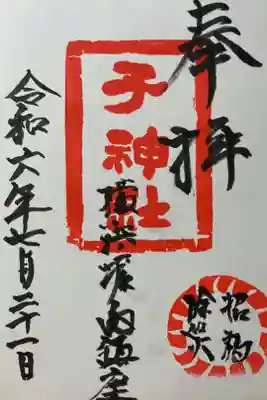 奉拝
子神社
横浜
鎮座
招福
除災
令和六年七月二十一日